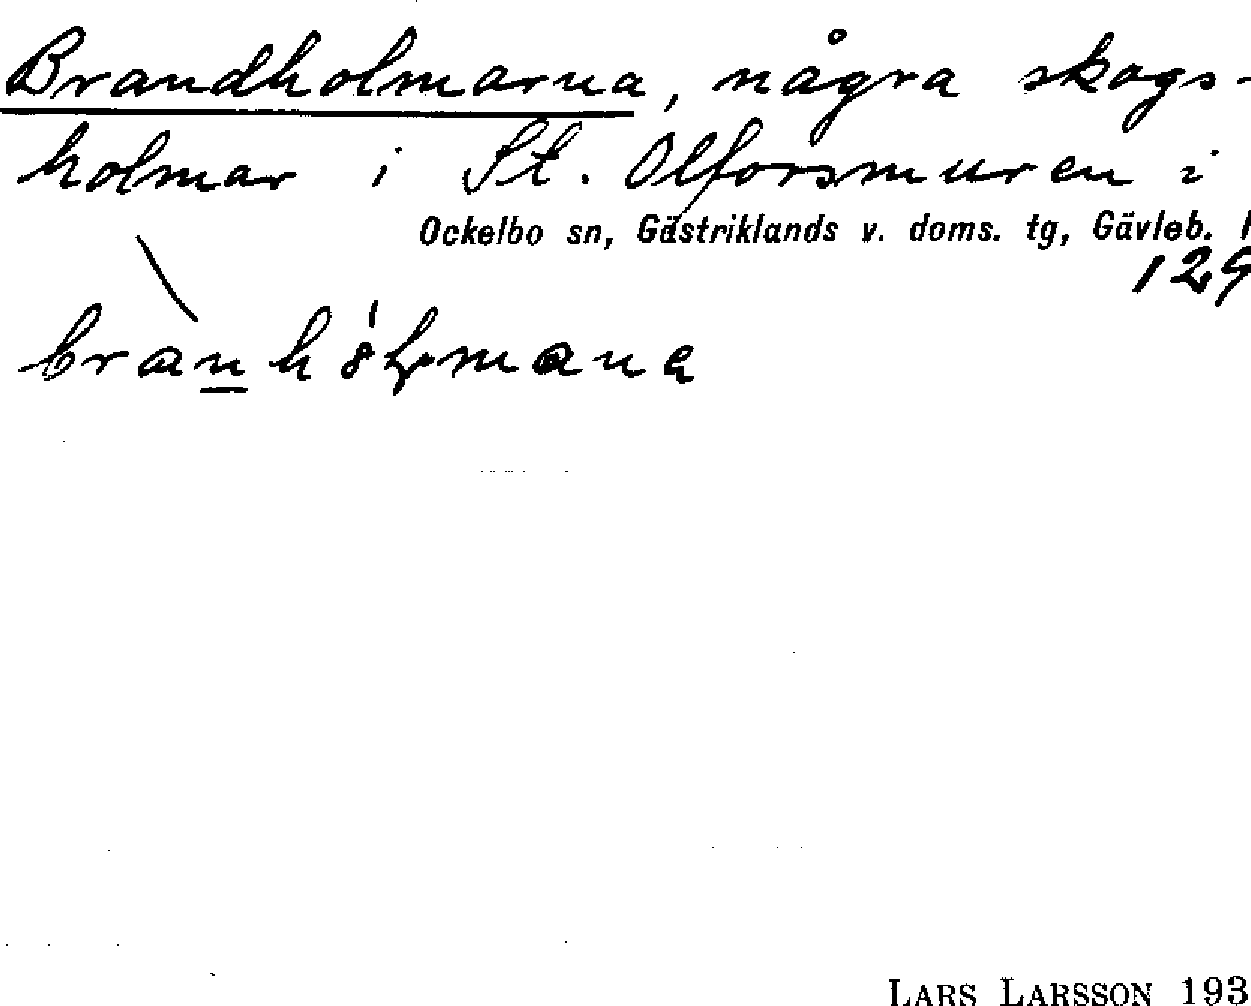 Brandholmarna, några skogs-
holmar i St. Olforsmuren i
Ockelbo sn, Gästriklands v. doms. tg, Gävleb. l
129
LARS LARSSON 193